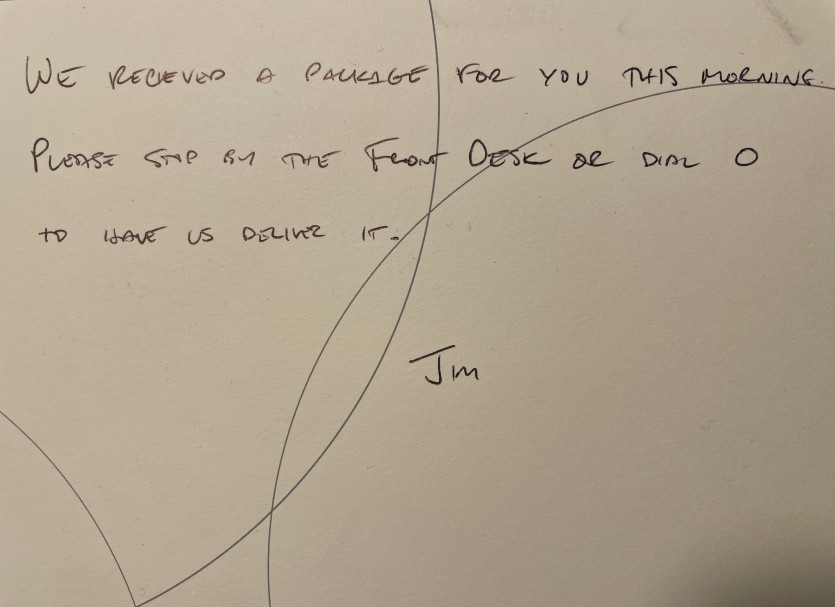 WE RECIEVED A PACKAGE FOR YOU THIS MORNING.
PLEASE STOP BY THE FRONT DESK OR DIAL 0
TO HAVE US DELIVER IT.
JIM